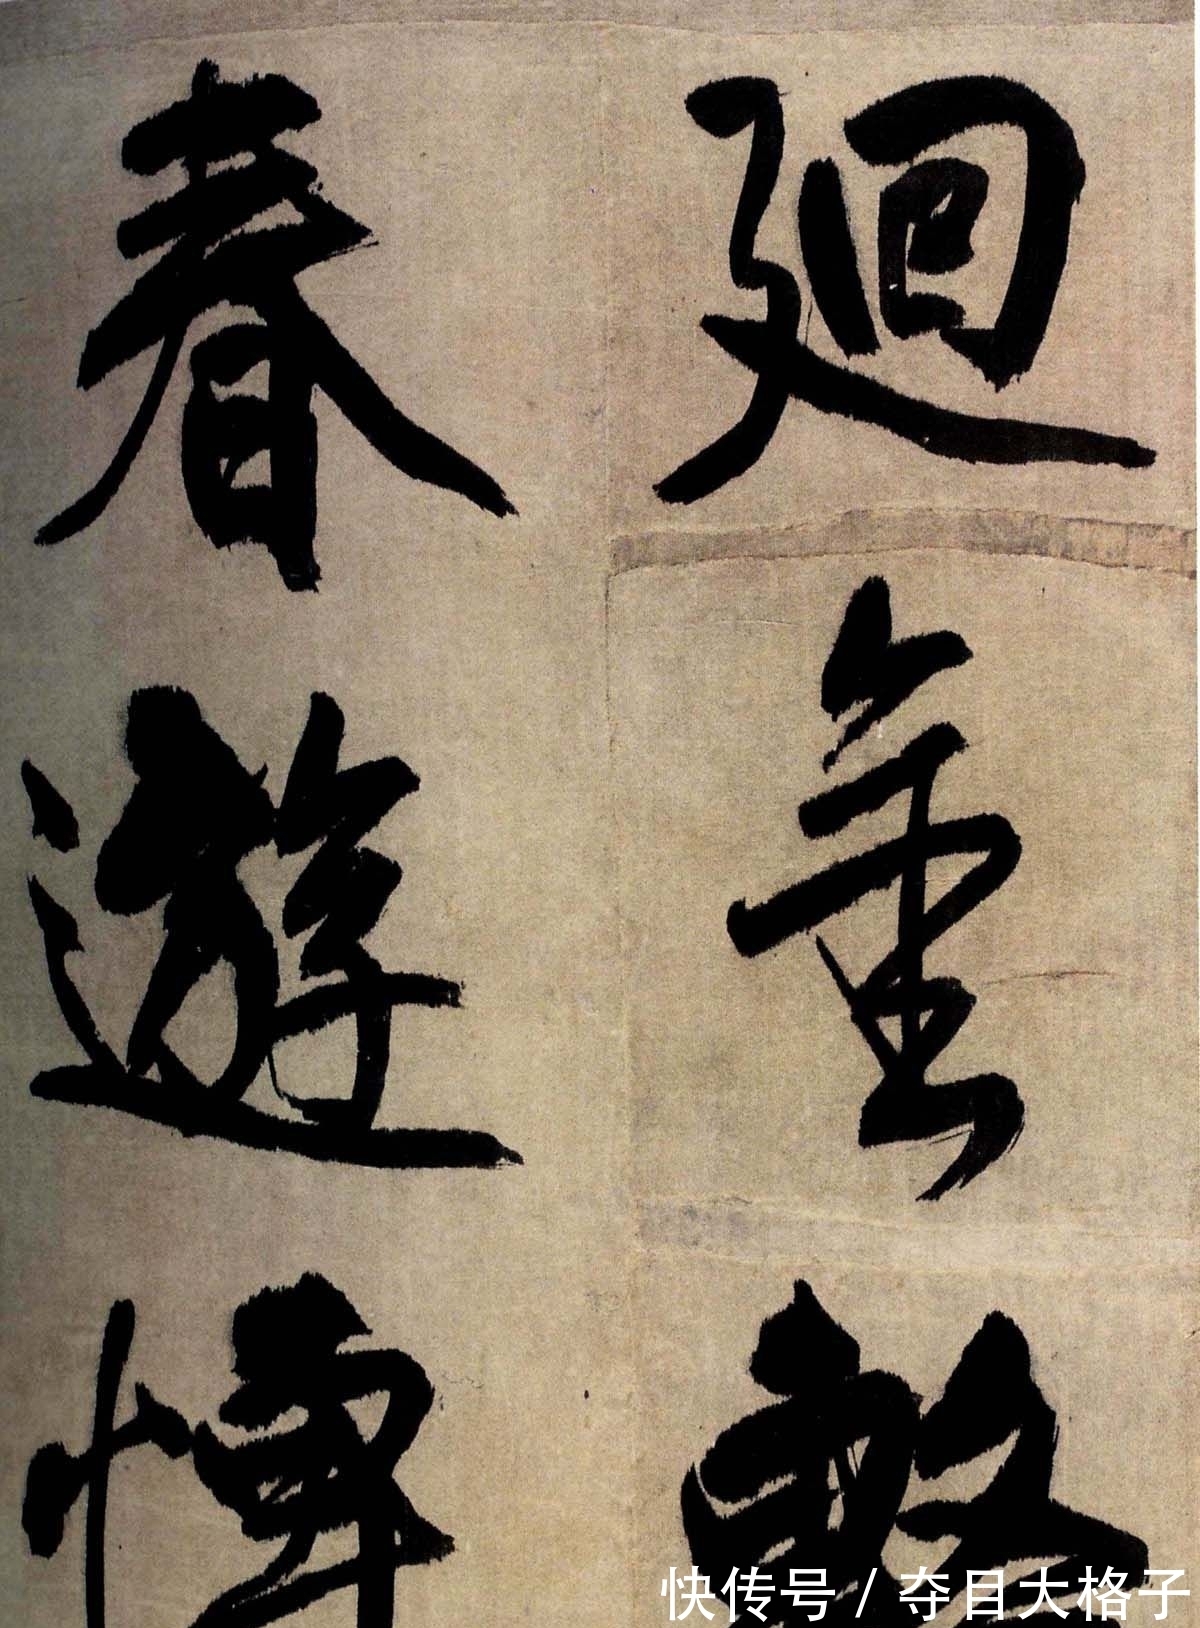 廻金
春遊
快传号 / 夺目大格子